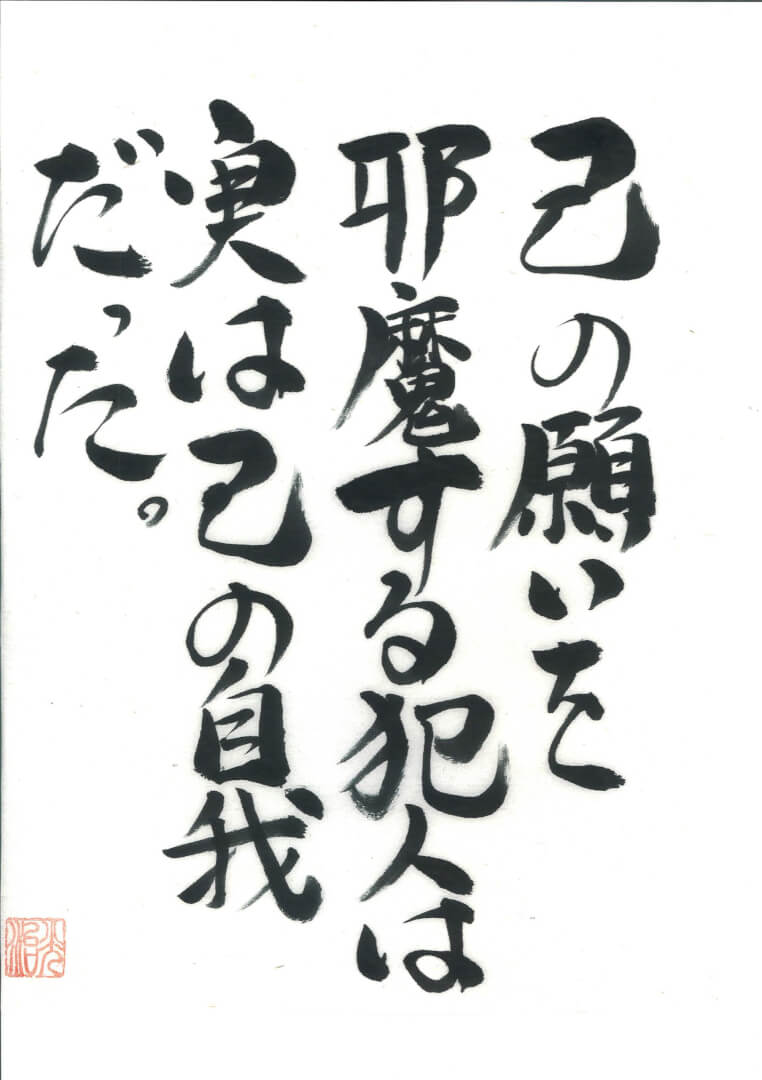 己の願いを
耶魔する犯人は
実は己の自我
だった。